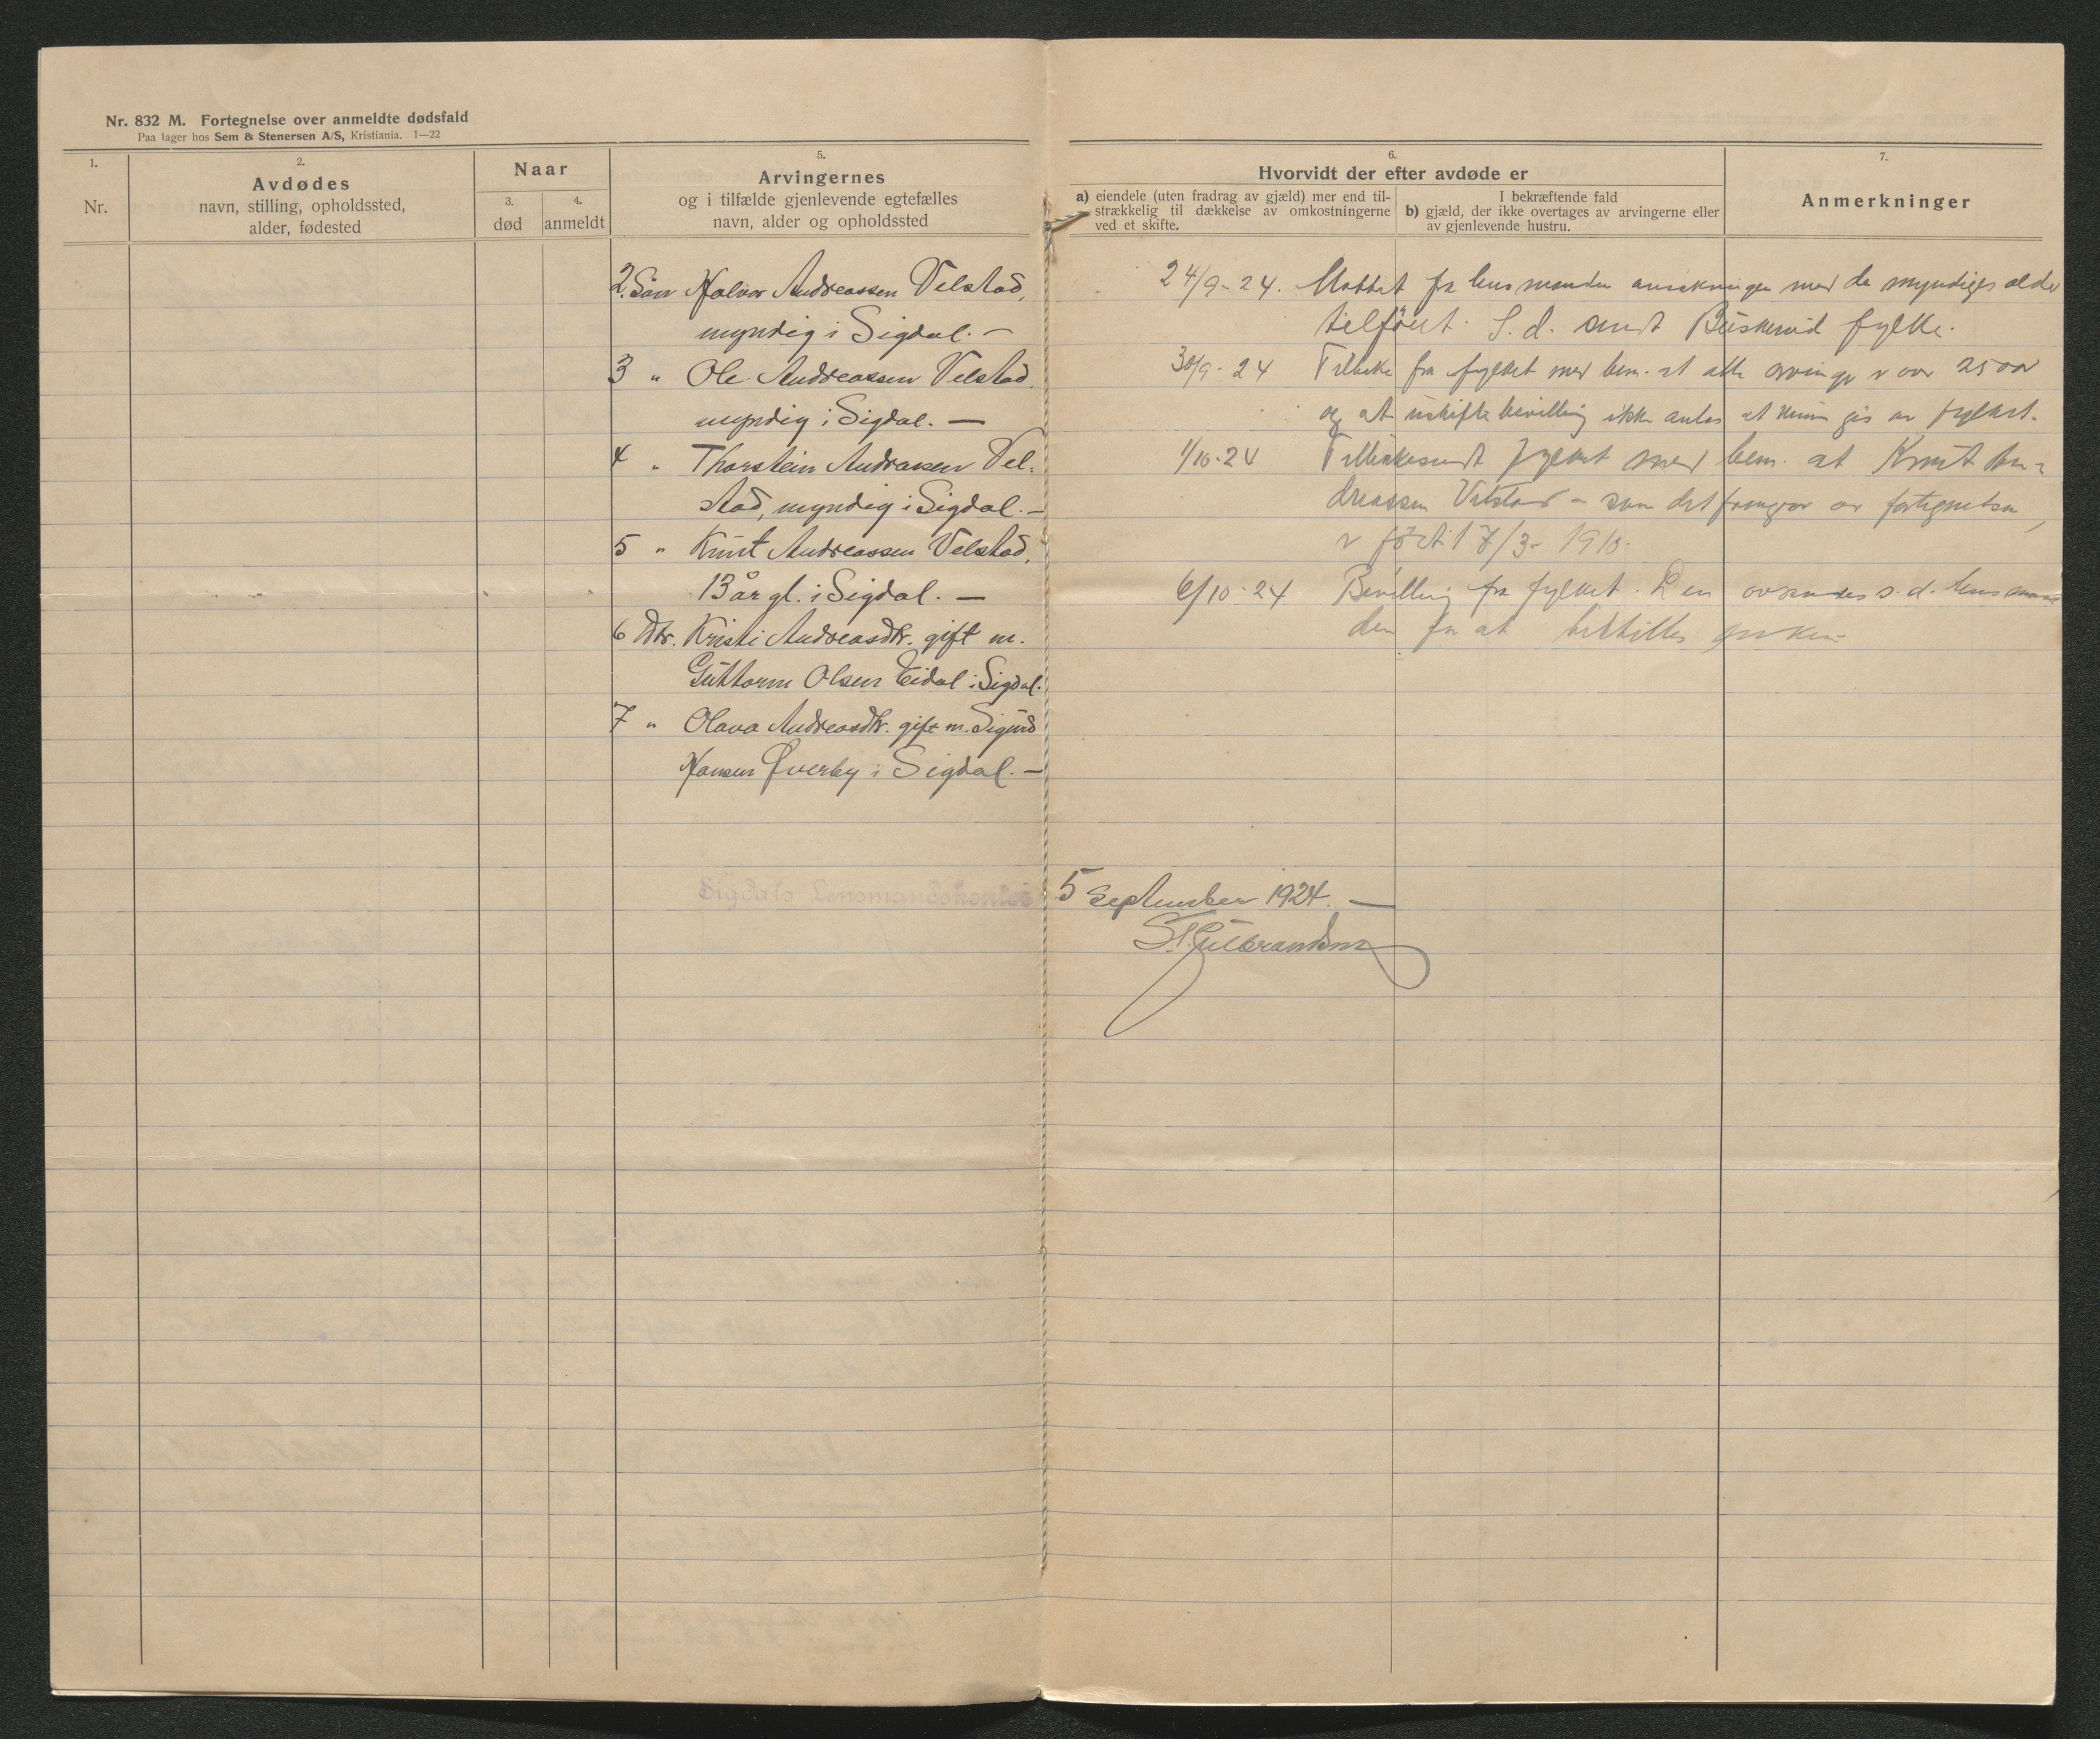 Nr. 832 M. Fortegnelse over anmeldte dødsfald
Paa lager hos Sem & Stenersen A/S, Kristiania. 1—22
1.
Nr.
2.
Avdødes
navn, stilling, opholdssted,
alder, fødested
Naar
3.
død
4.
anmeldt
5.
Arvingernes
og i tilfælde gjenlevende egtefælles
navn, alder og opholdssted
2. Søn Halvor Andreassen Velstad,
myndig i Sigdal. —
3 " Ole Andreassen Velstad,
myndig i Sigdal. —
4 " Thorstein Andreassen Vel-
stad, myndig i Sigdal. —
5 " Knut Andreassen Velstad,
13 år gl. i Sigdal. —
6 Dtr. Kristi Andreasdtr. gift m.
Guttorm Olsen Eidal i Sigdal.
7 " Olava Andreasdtr. gift m. Sigurd
Hansen Øverby i Sigdal. —
Sigdals Lensmandskontor
6.
Hvorvidt der efter avdøde er
a) eiendele (uten fradrag av gjæld) mer end til-
strækkelig til dækkelse av omkostningerne
ved et skifte.
I bekræftende fald
b) gjæld, der ikke overtages av arvingerne eller
av gjenlevende hustru.
7.
Anmerkninger
24/9-24. Mottat fra lensmanden ansøkningen med de myndiges alder
tilføiet. S.d. sendt Buskerud fylke.
30/9-24 Tilbake fra fylket med bem. at alle arvinger er over 25 aar
og at uskiftebevilling ikke antas at kunne gis av fylket.
1/10-24 Tilbakesendt fylket med bem. at Knut An-
dreassen Velstad - som det fremgaar av fortegnelsen,
er født 17/3-1910.
6/10-24 Bevilling fra fylket. Den oversendes s.d. lensman-
den for at tilstilles enken.
5 September 1924. —
Gulbrandsen